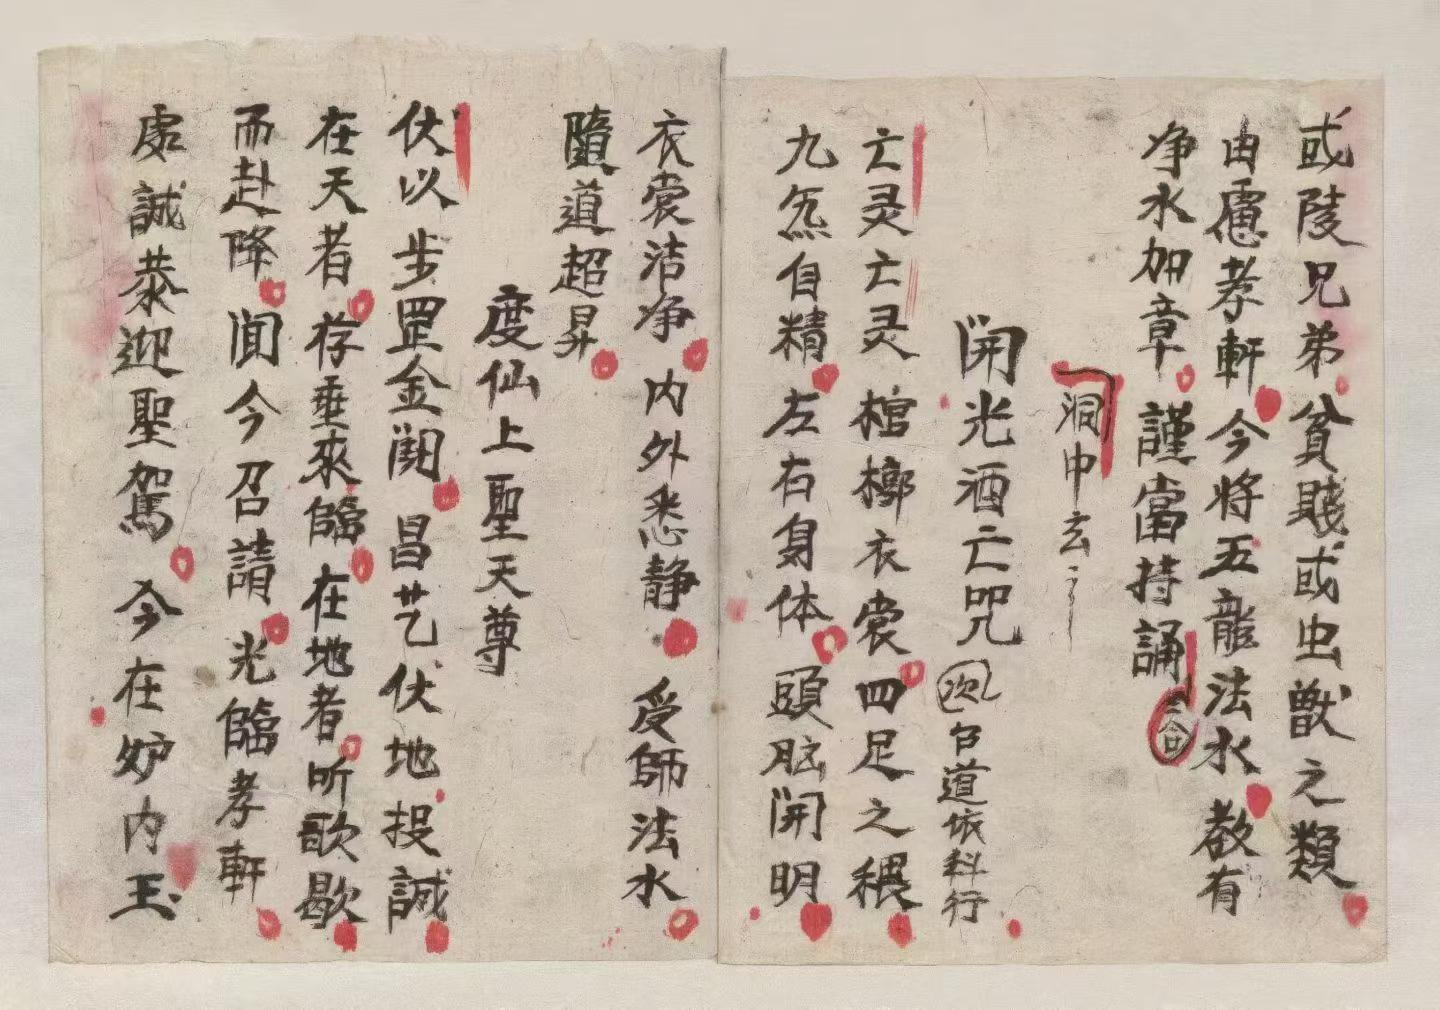 或陵兄弟貧賤或虫獸之類
由慮孝軒今将五龍法水教有
净水加章謹當持誦
洞中玄
開光洒亡咒
道依科行
亡灵亡灵棺槨衣裳四足之穏
九炁自精左右身体頭脑開明
衣裳洁净内外悉静受師法水
隨道超昇
度仙上聖天尊
伏以步罡金闕昌艺伏地投誠
在天者存垂來臨在地者听歌歇
而赴降聞今召請光臨孝軒
虔誠恭迎聖駕今在妒内玉